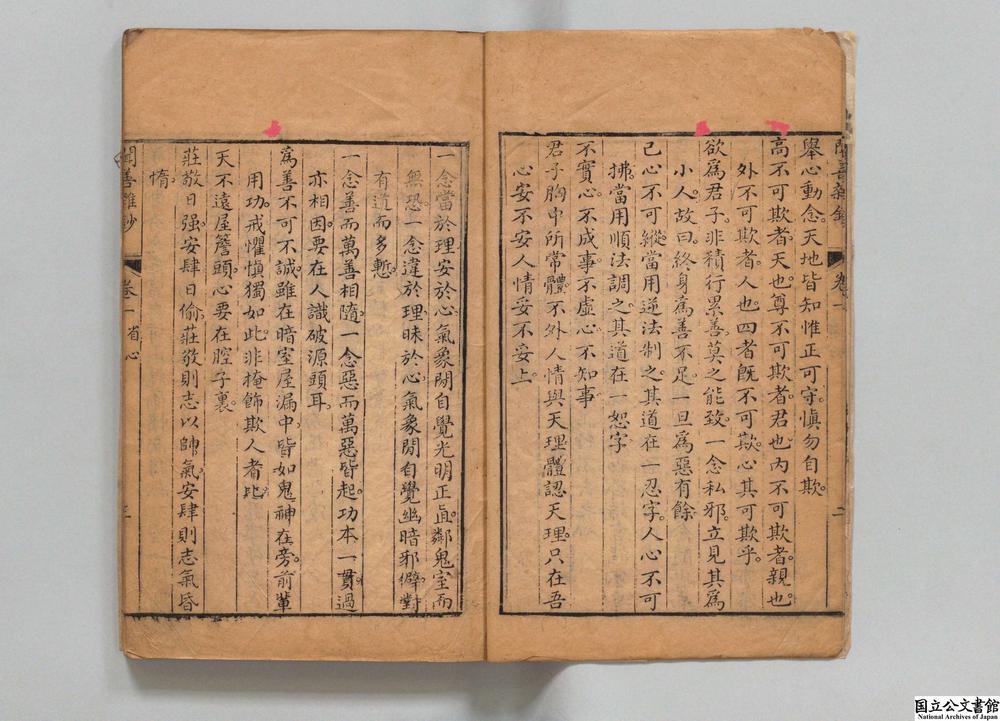 舉心動念天地皆知惟正可守慎勿自欺
高不可欺者天也尊不可欺者君也內不可欺者親也
外不可欺者人也四者既不可欺心其可欺乎
欲爲君子非積行累善莫之能致一念私邪立見其爲
小人故曰終身爲善不足一旦爲惡有餘
己心不可縱當用逆法制之其道在一忍字人心不可
拂當用順法調之其道在一恕字
不實心不成事不虛心不知事
君子胸中所常體不外人情與天理體認天理只在吾
心安不安人情妥不妥上
二
一念當於理安於心氣象閒自覺光明正直鄰鬼室而
無恐一念違於理昧於心氣象閒自覺幽暗邪僻對
有道而多慙
一念善而萬善相隨一念惡而萬惡皆起功本一貫過
亦相因要在人識破源頭耳
爲善不可不誠雖在暗室屋漏中皆如鬼神在旁前輩
用功戒懼愼獨如此非掩飾欺人者比
天不遠屋簷頭心要在腔子裏
莊敬日强安肆日偷莊敬則志以帥氣安肆則志氣昏
惰
聞善雜鈔 卷一 省心 三
国立公文書館
National Archives of Japan